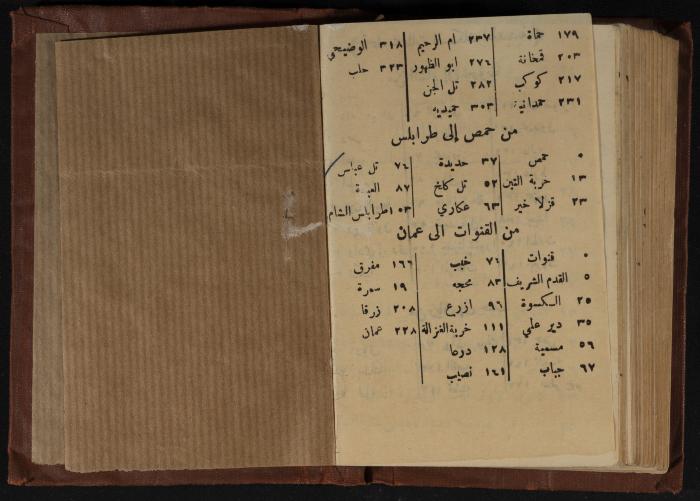 ١٧٩ حماة ٢٣٧ ام الرحيم ٣١٨ الوضيحي
٢٠٣ قمخانة ٢٧٤ ابو الظهور ٣٢٣ حلب
٢١٧ كوكب ٢٨٢ تل الجن
٢٣١ حمدانية ٣٠٣ حميديه
من حمص إلى طرابلس
٠ حمص ٣٧ حديدة ٧٤ تل عباس
١٣ خربة التين ٥٢ تل كلخ ٨٧ العبدة
٢٣ قزلا خير ٦٣ عكاري ١٠٣ طرابلس الشام
من القنوات الى عمان
٠ قنوات ٧٤ خبب ١٦٦ مفرق
٥ القدم الشريف ٨٣ محجه ١٩ سمرة
٢٥ الكسوة ٩٦ ازرع ٢٠٨ زرقا
٣٥ دير علي ١١١ خربة الغزالة ٢٢٨ عمان
٥٦ مسمية ١٢٨ درعا
٦٧ جباب ١٤١ نصيب